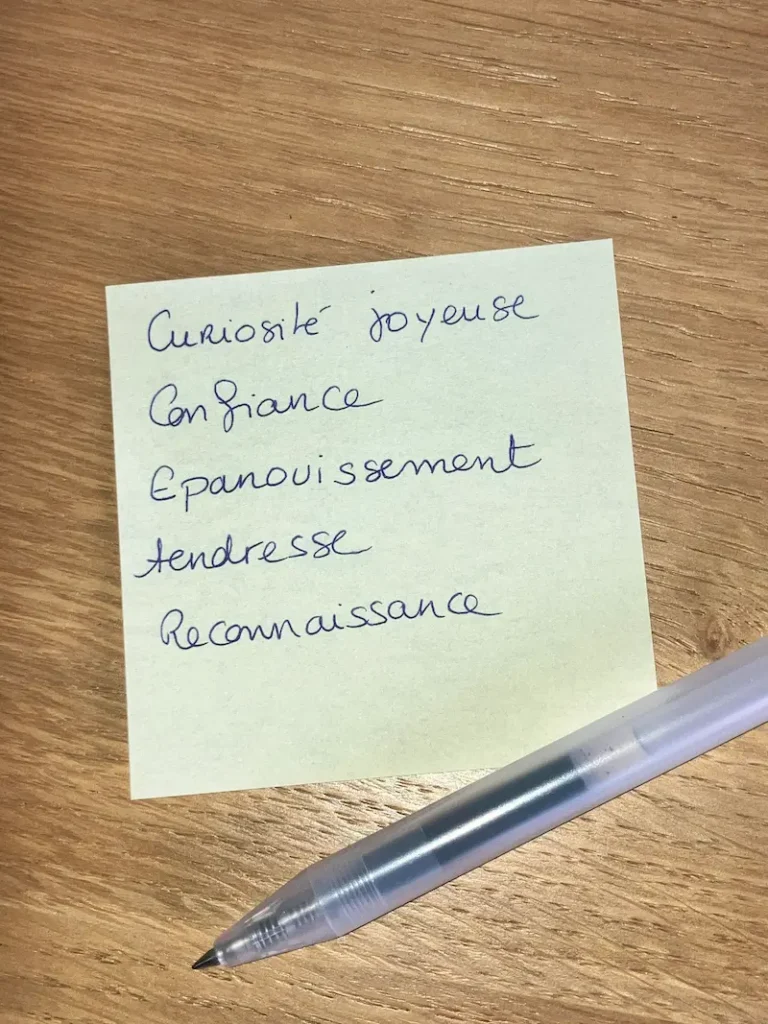 Curiosité joyeuse
Confiance
Epanouissement
tendresse
Reconnaissance